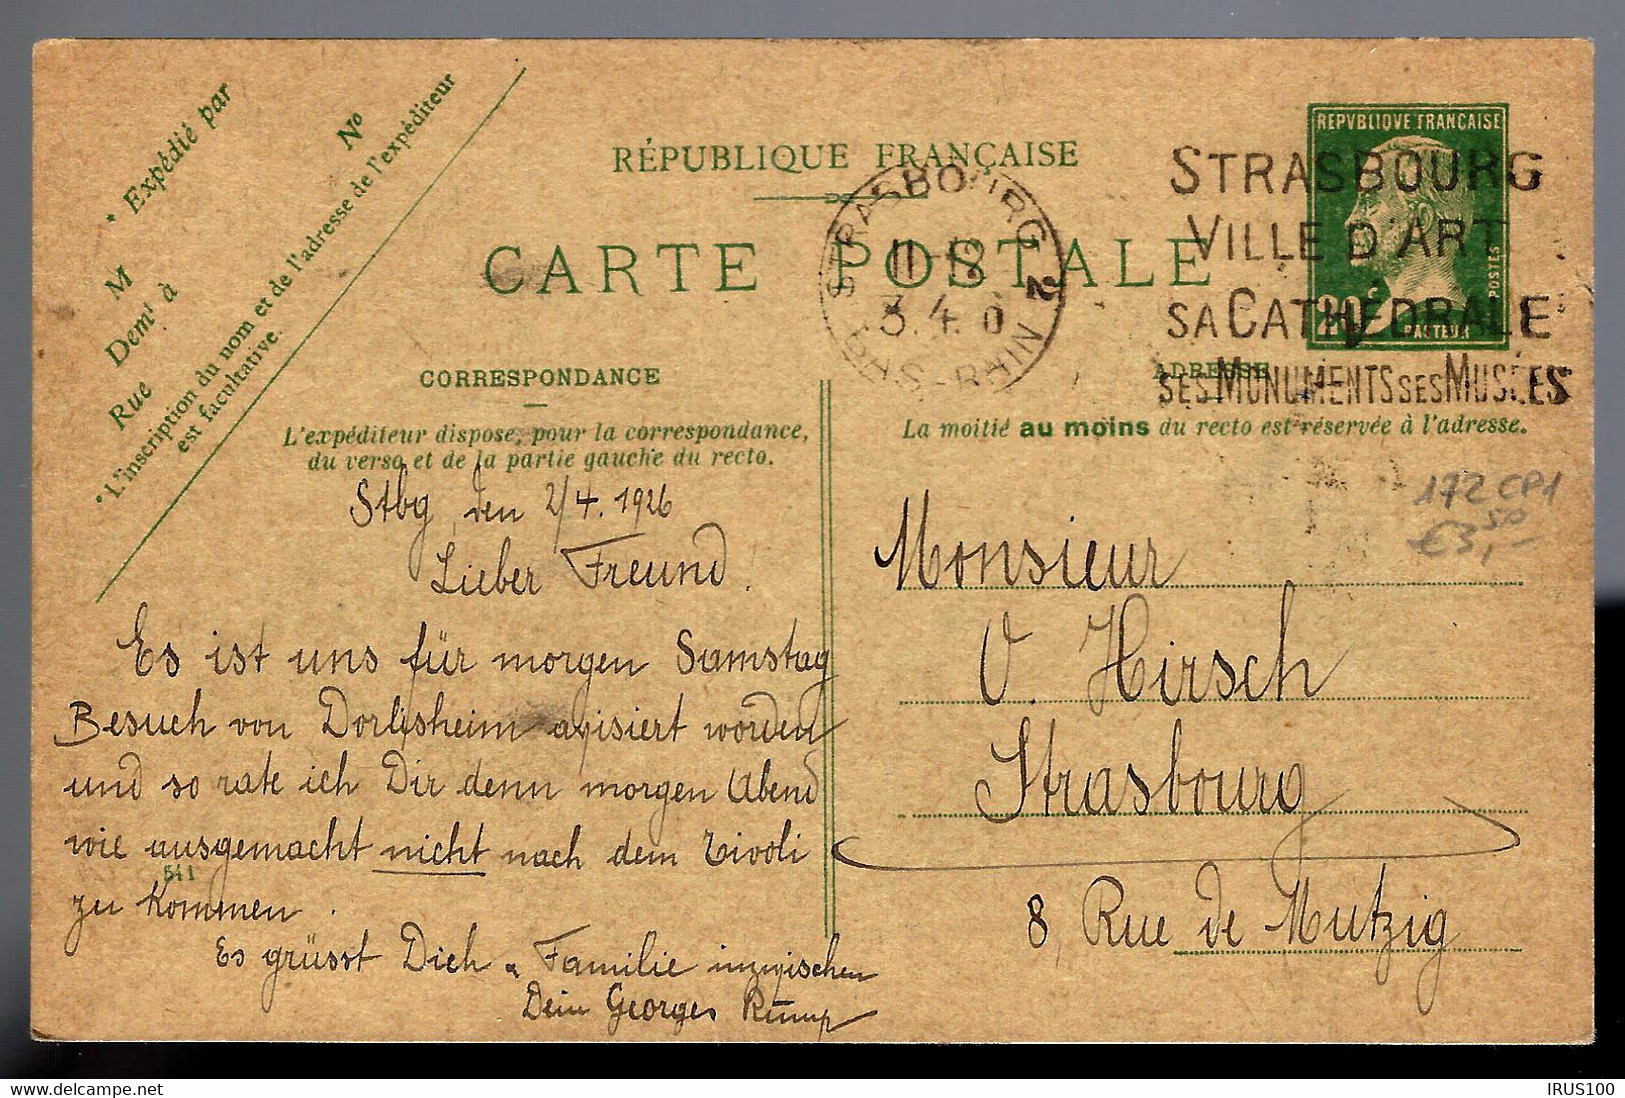 * Expédié par
M
Demt à
Rue
No
* L'inscription du nom et de l'adresse de l'expéditeur
est facultative.
RÉPUBLIQUE FRANÇAISE
CARTE POSTALE
REPVBLIQVE FRANÇAISE
POSTES
PASTEUR
STRASBOURG 2
11-12
3. 4.
BAS-RHIN
STRASBOURG
VILLE D'ART
SA CATHÉDRALE
SES MONUMENTS SES MUSÉES
CORRESPONDANCE
L'expéditeur dispose, pour la correspondance,
du verso et de la partie gauche du recto.
ADRESSE
La moitié au moins du recto est réservée à l'adresse.
172 CP1
€3,50-
Stbg, den 2/4. 1926
Lieber Freund.
Es ist uns für morgen Samstag
Besuch von Dorlisheim avisiert worden
und so rate ich Dir denn morgen Abend
wie ausgemacht nicht nach dem Tivoli
541
zu kommen.
Es grüsst Dich & Familie inzwischen
Dein Georges
Monsieur
O. Hirsch
Strasbourg
8, Rue de Mutzig
IRUS100